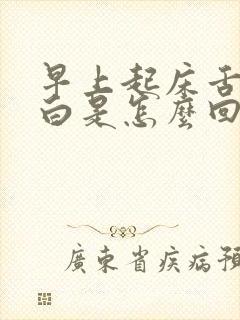 早上起床舌
白是怎麼回
廣東省疾病預